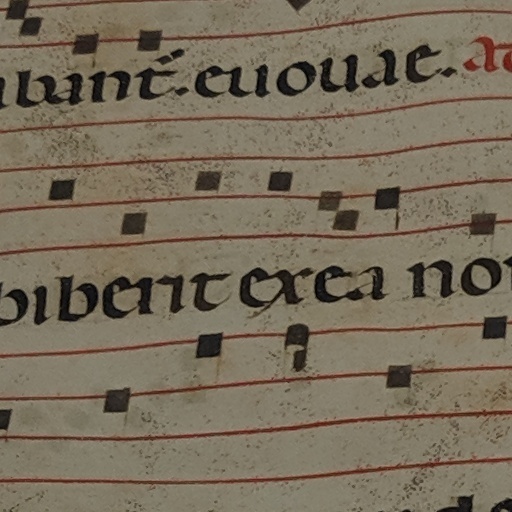 bant̄. euouae. a
biberit ex ea non